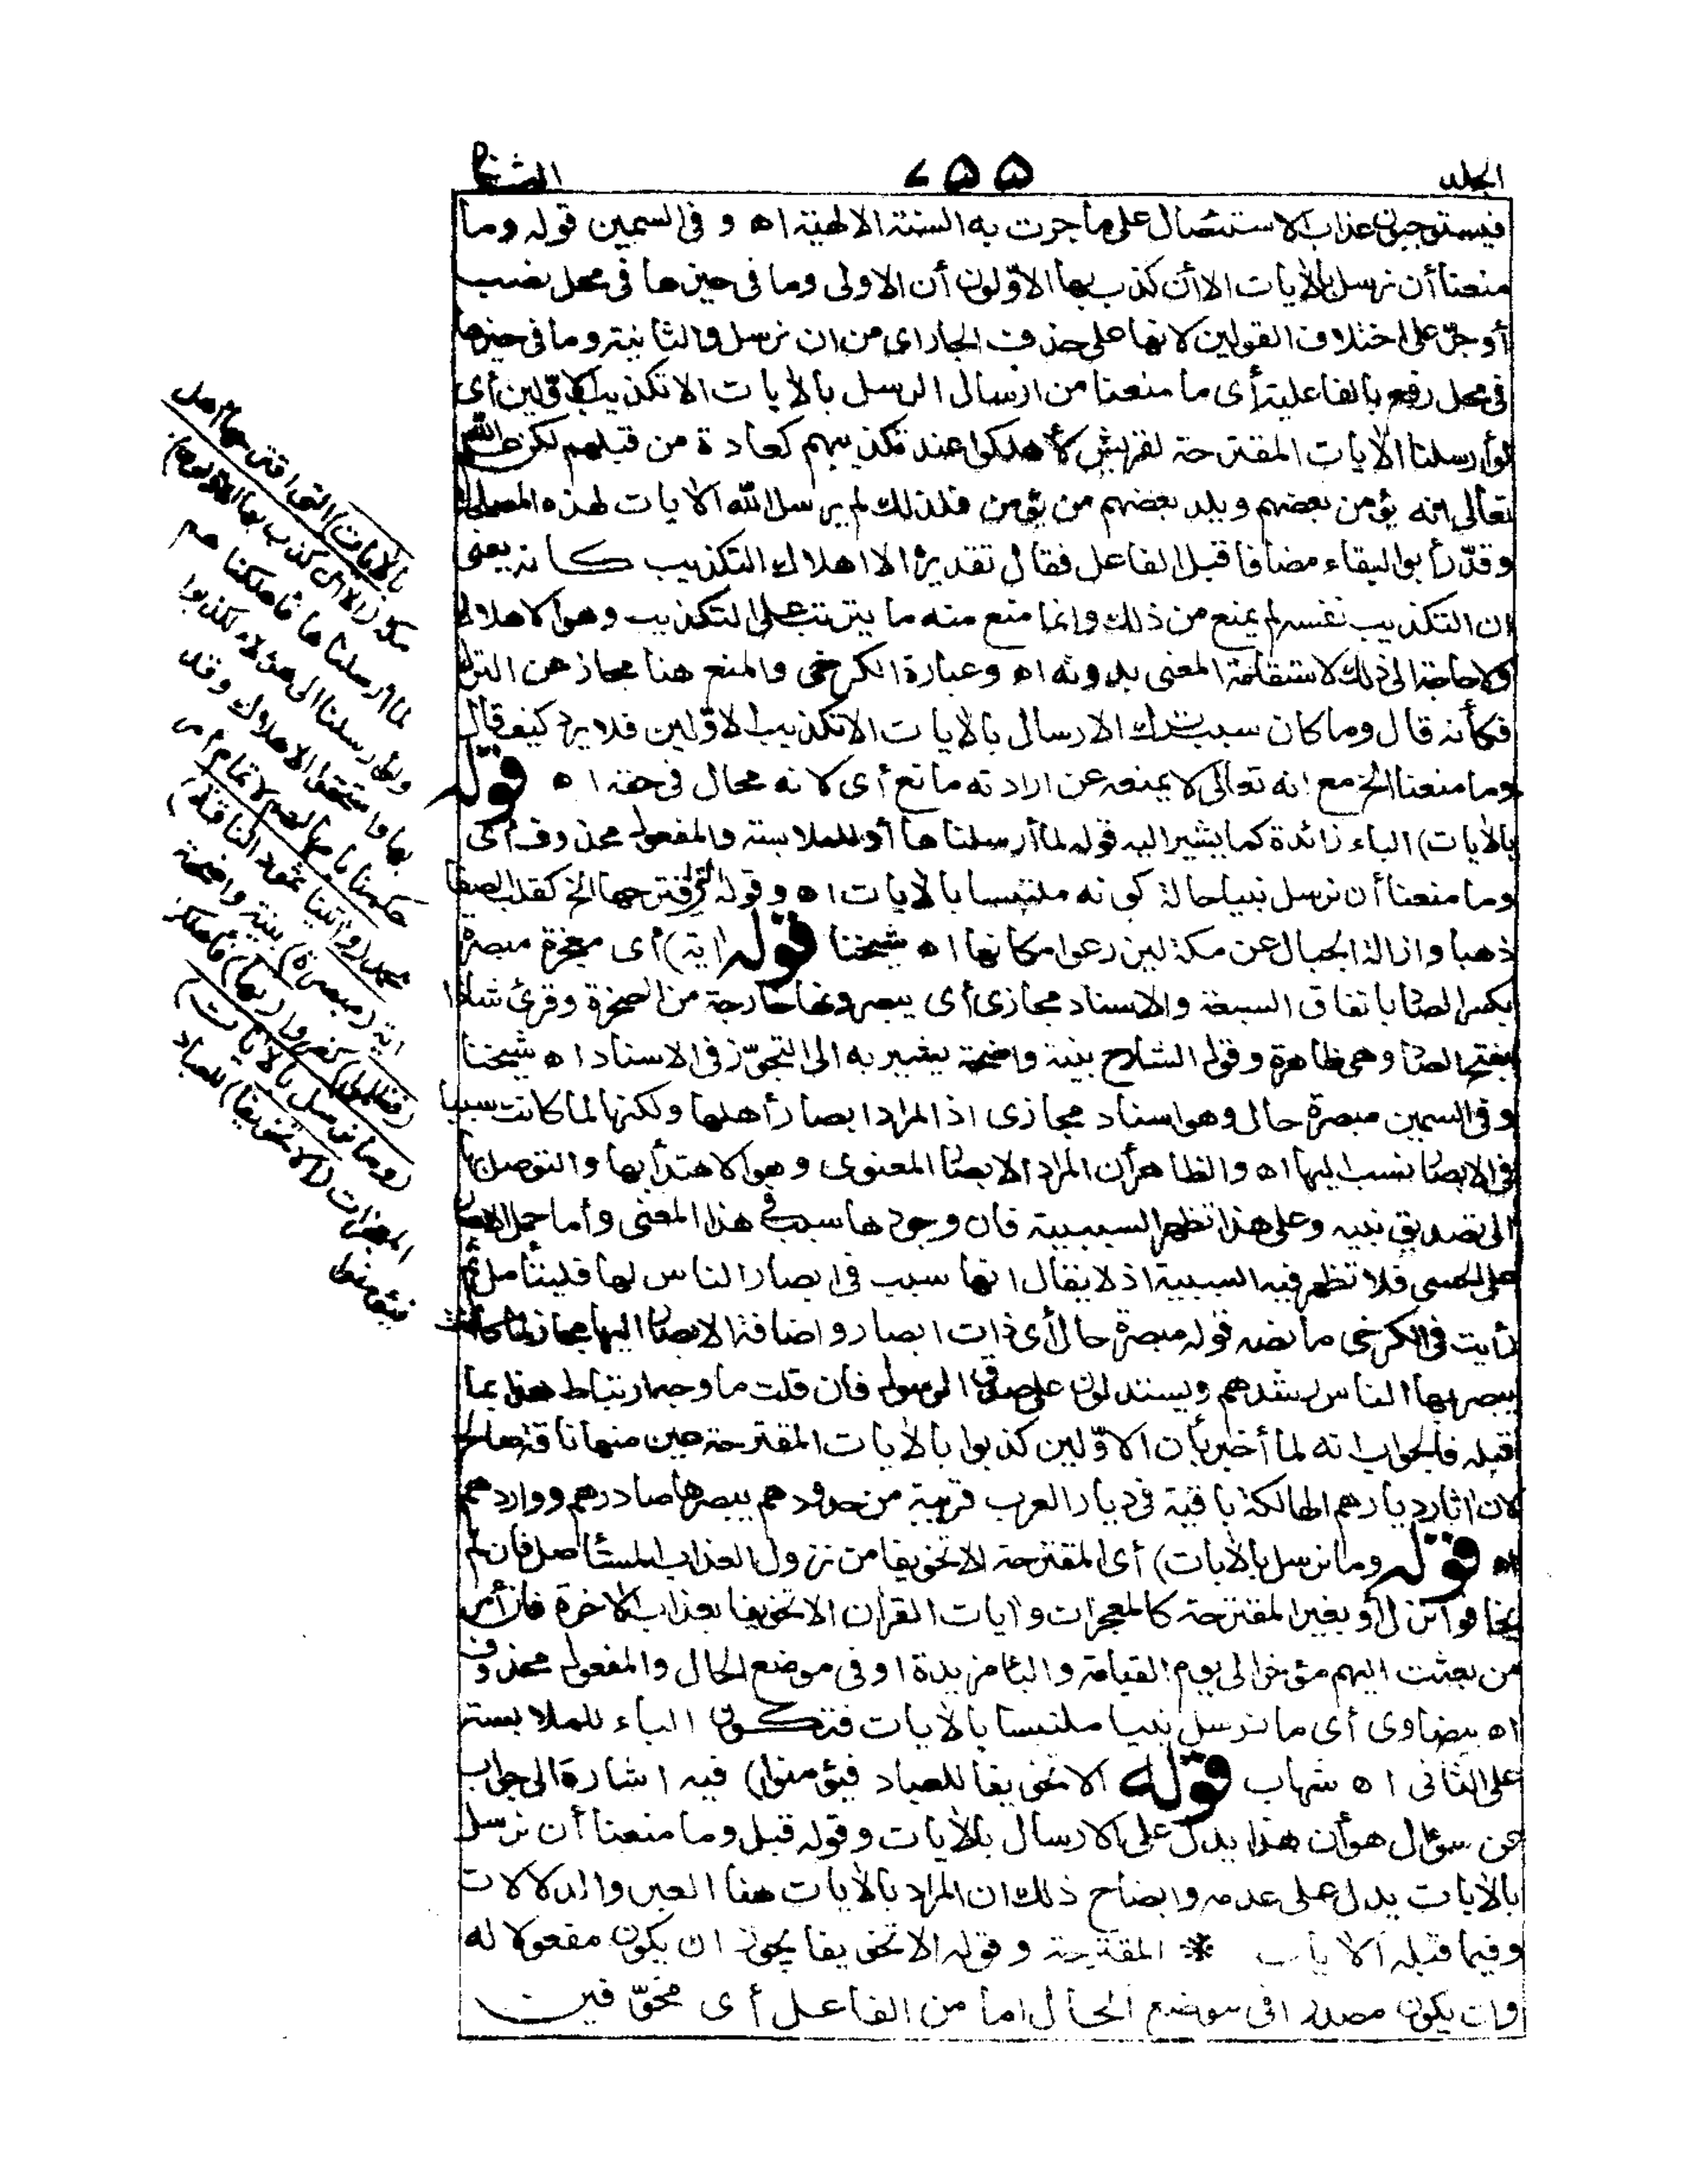 الجلد
٧٥٥
فيستوجبون عذاب الاستئصال على ما جرت به السنة الالهية اه و فى السمين قوله وما
منعنا أن نرسل بالآيات الا أن كذب بها الاوّلون أن الاولى وما فى حيزها فى محل نصب
أو جرّ على اختلاف القولين لانها على حذف الجار اى من ان نرسل والثانية وما فى حيزها
فى محل رفع بالفاعلية أى ما منعنا من ارسال الرسل بالآيات الا تكذيب الاوّلين أى
لو أرسلنا الآيات المقترحة لقريش لأهلكوا عند تكذيبهم كعادة من قبلهم لكن علم الله
تعالى انه يؤمن بعضهم ويلد بعضهم من يؤمن فلذلك لم يرسل الله الآيات لهذه المصلحة
وقدّر أبو البقاء مضافا قبل الفاعل فقال تقديره الا اهلاك التكذيب كانه يعنى
ان التكذيب نفسه لم يمنع من ذلك وانما منع منه ما يترتب على التكذيب وهو الاهلاك
ولا حاجة الى ذلك لاستقامة المعنى بدونه اه وعبارة الكرخى والمنع هنا مجاز عن الترك
فكأنه قال وما كان سبب ترك الارسال بالآيات الا تكذيب الاوّلين فلا يرد كيف قال
وما منعنا الخ مع انه تعالى لا يمنعه عن ارادته مانع أى لانه محال فى حقه اه قوله
بالآيات) الباء زائدة كما يشير اليه قوله لما أرسلناها أو للملابسة والمفعول محذوف أى
وما منعنا أن نرسل نبيا حالة كونه ملتبسا بالآيات اه وقوله التى اقترحها الخ كقلب الصفا
ذهبا وازالة الجبال عن مكة ليزرعوا مكانها اه شيخنا قوله آية) أى معجزة مبصرة
بكسر الصاد باتفاق السبعة والاسناد مجازى أى يبصرونها خارجة من الصخرة وقرئ شاذا
بفتح الصاد وهى ظاهرة وقول الشارح بينة واضحة يشير به الى التجوّز فى الاسناد اه شيخنا
وفى السمين مبصرة حال وهو اسناد مجازى اذ المراد ابصار أهلها ولكنها لما كانت سببا
فى الابصار نسب اليها اه والظاهر أن المراد الابصار المعنوى وهو الاهتداء بها والتوصل بها
الى تصديق نبيه وعلى هذا تظهر السببية فان وجودها سبب فى هذا المعنى وأما حمل الابصار
على الحسى فلا تظهر فيه السببية اذ لا يقال انها سبب فى ابصار الناس لها فليتأمل ثم
رأيت فى الكرخى ما نصه قوله مبصرة حال أى ذات ابصار واضافة الابصار اليها مجاز لما كانت
يبصر بها الناس رشدهم ويستدلون على صدق الرسول فان قلت ما وجه ارتباط هذا بما
قبله فالجواب انه لما أخبر بأن الاوّلين كذبوا بالآيات المقترحة عين منها ناقة صالح
لان آثار ديارهم الهالكة باقية فى ديار العرب قريبة من حدودهم يبصرها صادرهم وواردهم
اه قوله وما نرسل بالآيات) أى المقترحة الا تخويفا من نزول العذاب المستأصل فان لم
يخافوا نزل أو بغير المقترحة كالمعجزات وآيات القرآن الا تخويفا بعذاب الآخرة فان أمر
من بعثت اليهم مؤخر الى يوم القيامة والباء مزيدة او فى موضع الحال والمفعول محذوف
اه بيضاوى أى ما نرسل نبيا ملتبسا بالآيات فتكون الباء للملابسة
على الثانى اه شهاب قوله الا تخويفا للعباد فيؤمنوا) فيه اشارة الى جواب
عن سؤال هو أن هذا يدل على الارسال بالآيات وقوله قبل وما منعنا أن نرسل
بالآيات يدل على عدمه وايضاح ذلك ان المراد بالآيات هنا العبر والدلالات
وفيما قبله الآيات * المقترحة وقوله الا تخويفا يجوز ان يكون مفعولا له
وان يكون مصدرا فى موضع الحال اما من الفاعل أى مخوّفين
بالآيات) التى اقترحها أهل
مكة (الا أن كذب بها الاوّلون)
لما أرسلناها فأهلكناهم
ولو أرسلنا الى هؤلاء لكذبوا
بها واستحقوا الاهلاك وقد
حكمنا بامهالهم لاتمام أمر
محمد (وآتينا ثمود الناقة)
آية (مبصرة) بينة واضحة
(فظلموا) كفروا (بها) فأهلكوا
(وما نرسل بالآيات)
المعجزات (الا تخويفا) للعباد
فيؤمنوا